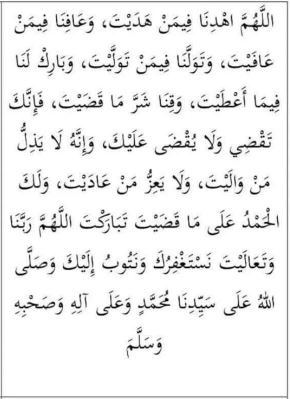 اللَّهُمَّ اهْدِنَا فِيمَنْ هَدَيْتَ، وَعَافِنَا فِيمَنْ
عَافَيْتَ، وَتَوَلَّنَا فِيمَنْ تَوَلَّيْتَ، وَبَارِكْ لَنَا
فِيمَا أَعْطَيْتَ، وَقِنَا شَرَّ مَا قَضَيْتَ، فَإِنَّكَ
تَقْضِي وَلَا يُقْضَى عَلَيْكَ، وَإِنَّهُ لَا يَذِلُّ
مَنْ وَالَيْتَ، وَلَا يَعِزُّ مَنْ عَادَيْتَ، وَلَكَ
الْحَمْدُ عَلَى مَا قَضَيْتَ تَبَارَكْتَ اللَّهُمَّ رَبَّنَا
وَتَعَالَيْتَ نَسْتَغْفِرُكَ وَنَتُوبُ إِلَيْكَ وَصَلَّى
اللهُ عَلَى سَيِّدِنَا مُحَمَّدٍ وَعَلَى آلِهِ وَصَحْبِهِ
وَسَلَّمَ